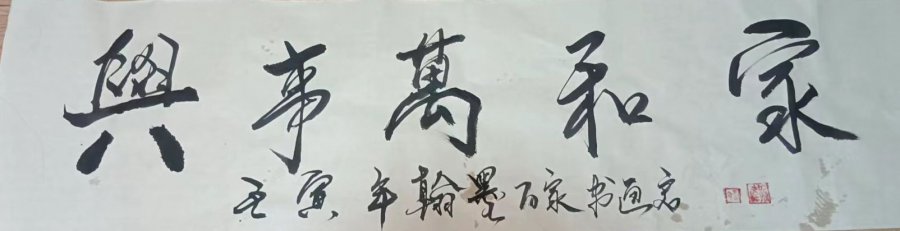 家和萬事興
壬寅年翰墨百家书画